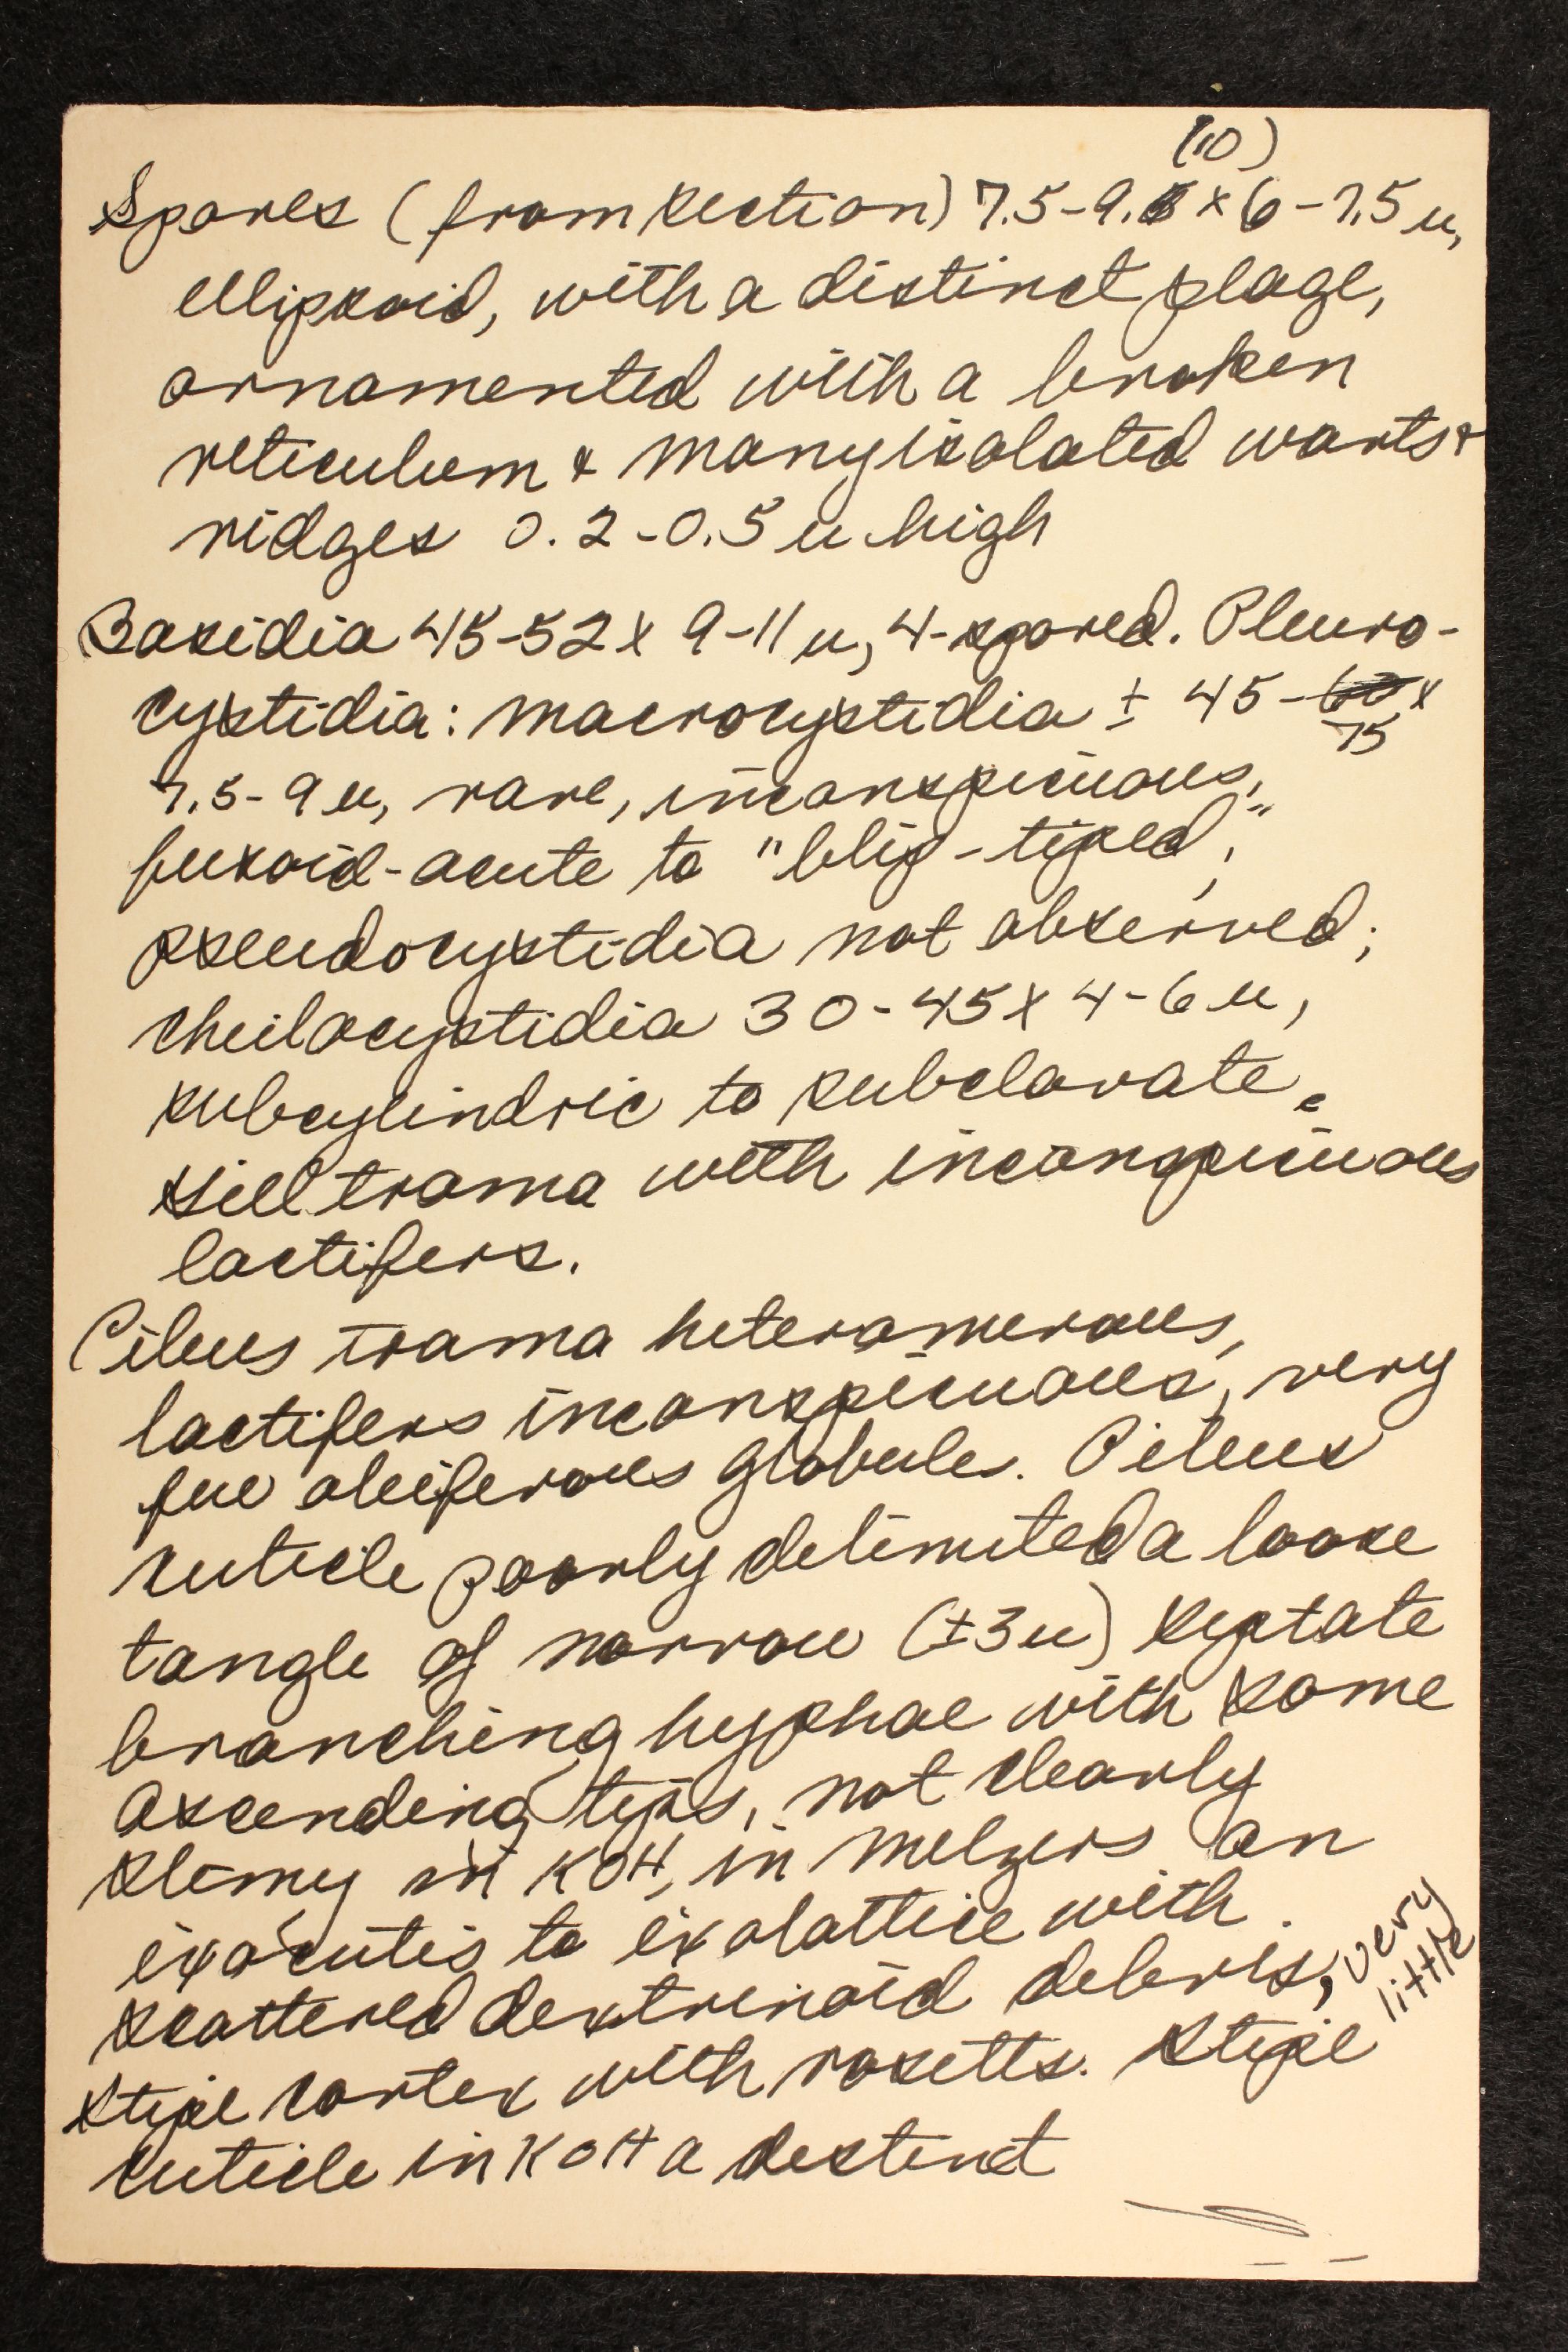 (10)
Spores (from section) 7.5-9. x 6-7.5 u,
ellipsoid, with a distinct plage,
ornamented with a broken
reticulum & many isolated warts &
ridges 0.2-0.5 u high
Basidia 45-52 x 9-11 u, 4-spored. Pleuro-
cystidia: macrocystidia ± 45-60 x
75
7.5-9 u, rare, inconspicuous,
fusoid-acute to "blip-tiped,"
pseudocystidia not observed;
cheilocystidia 30-45 x 4-6 u,
subcylindric to subclavate.
Gill trama with inconspicuous
lactifers.
Pileus trama heteromerous,
lactifers inconspicuous, very
few oleiferous globules. Pileus
cuticle poorly delimited a loose
tangle of narrow (±3 u) septate
branching hyphae with some
ascending tips, not clearly
slimy in KOH, in melzers an
ixocutis to ixolattice with
scattered dextrinoid debris, very
little
Stipe cortex with rosetts. Stipe
cuticle in KOH a distinct